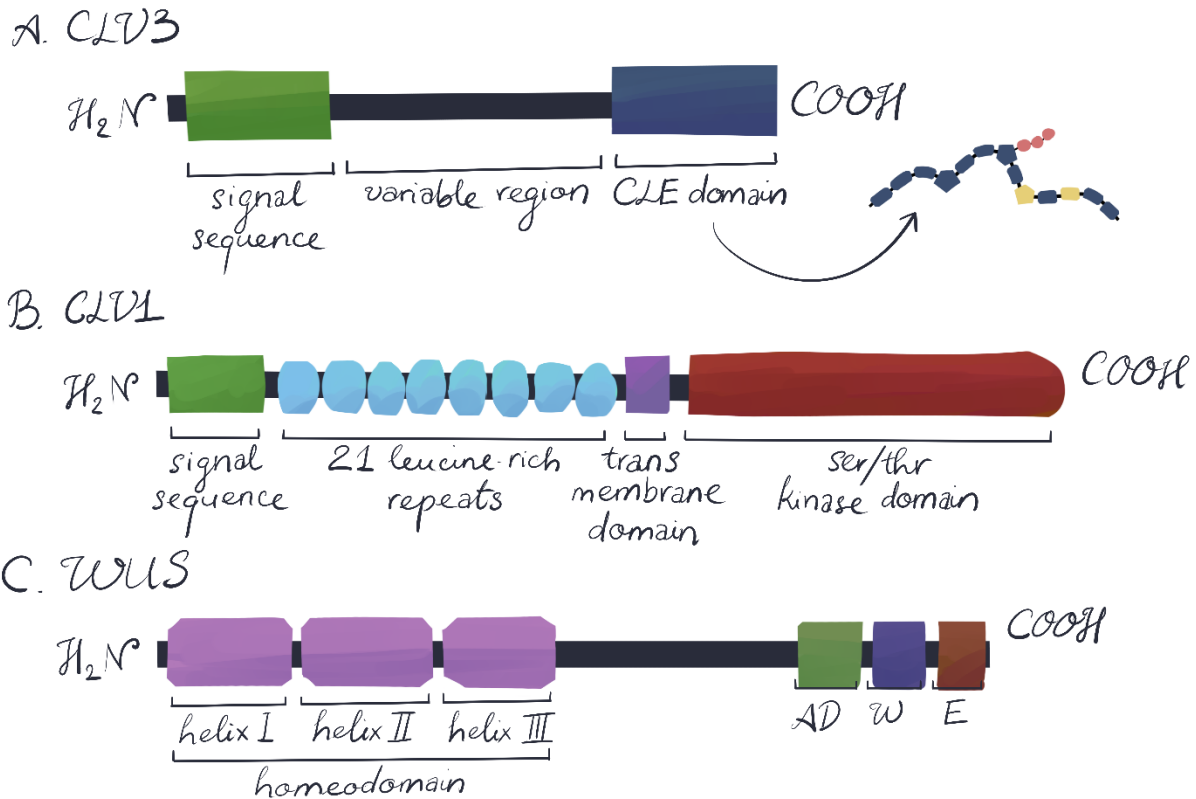 A. CLV3
H₂N
COOH
signal
sequence
variable region
CLE domain
B. CLV1
H₂N
COOH
signal
sequence
21 leucine-rich
repeats
trans
membrane
domain
ser/thr
kinase domain
C. WUS
H₂N
COOH
helix I
helix II
helix III
AD
W
E
homeodomain